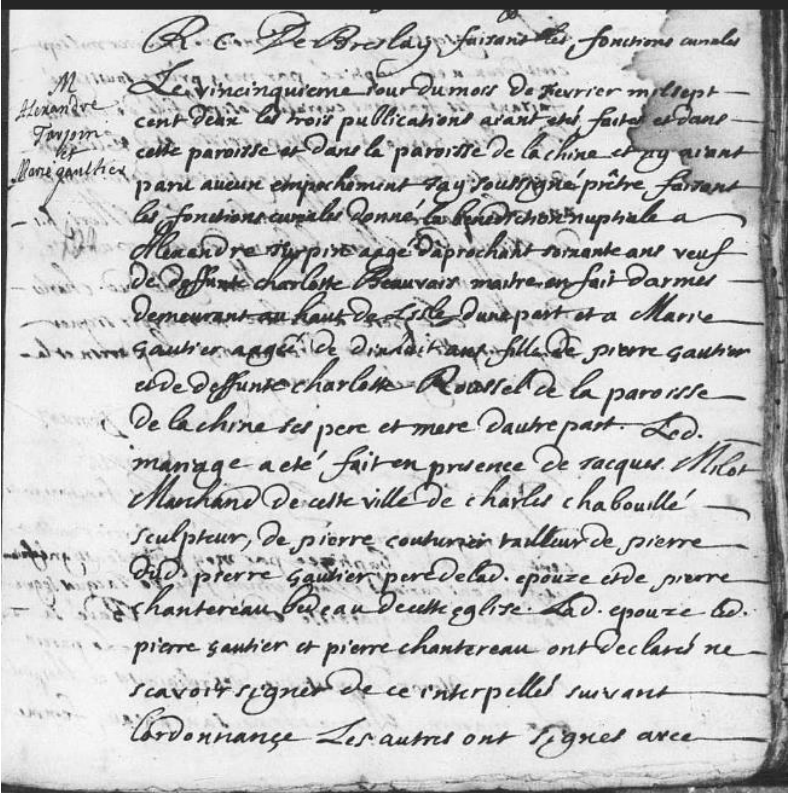 R. C. De Breslay faisant les fonctions curiales
M
Alexandre
Turpin
et
Marie gaultier
Le vincinquieme jour du mois de Fevrier mil sept
cent deux les trois publications aiant etés faites et dans
cette paroisse et dans la paroisse de la chine et ny aiant
paru aucun empechement Jay soussigné prêtre, faisant
les fonctions curiales donné la benediction nuptiale a
Alexandre Turpin aagé daprochant soixante ans veuf
de deffunte charlotte Beauvais maitre en fait darmes
demeurant au haut de Lisle dune part et a Marie
Gautier aagéé de dixhuit ans fille de pierre Gautier
et de deffunte charlotte Roussel de la paroisse
de la chine ses pere et mere dautre part. Led.
mariage a eté fait en presence de Jacques Milot
Marchand de cette ville de charles chabouillé
sculpteur, de pierre couturier tailleur de pierre
dud. pierre Gautier pere de lad. epouze et de pierre
chantereau bedeau de cette eglise. Lad. epouze led.
pierre Gautier et pierre chantereau ont declarés ne
scavoir signer de ce interpellés suivant
lordonnance Les autres ont signes avec